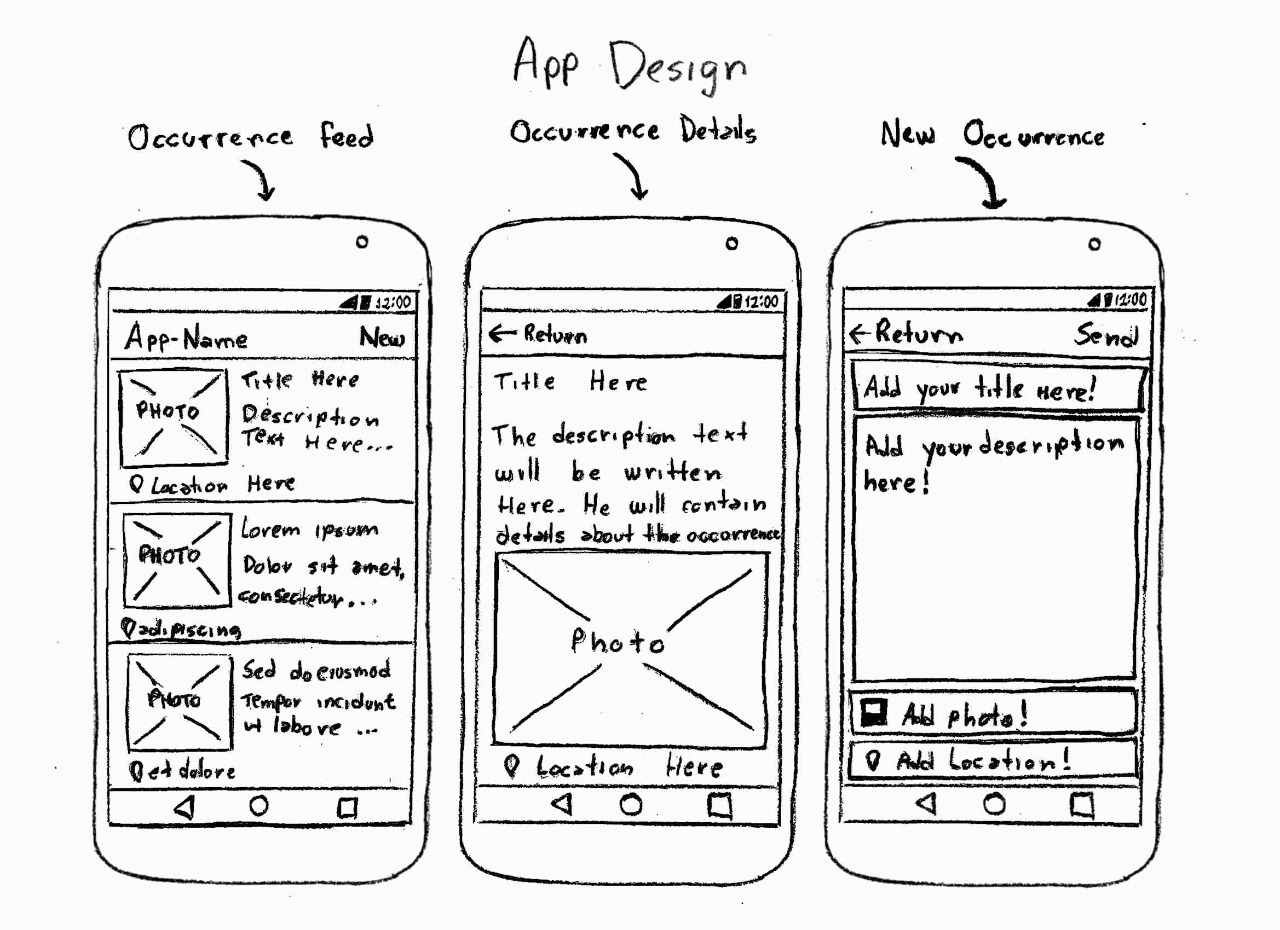 App Design
Occurrence feed
Occurrence Details
New Occurrence
12:00
App-Name New
PHOTO
Title Here
Description
Text Here...
Location Here
PHOTO
Lorem ipsum
Dolor sit amet,
consectetur...
adipiscing
PHOTO
Sed do eiusmod
Tempor incidunt
ut labore ...
et dolore
12:00
← Return
Title Here
The description text
will be written
Here. He will contain
details about the occorrence
Photo
Location Here
12:00
← Return Send
Add your title Here!
Add your description
here!
Add photo!
Add Location!